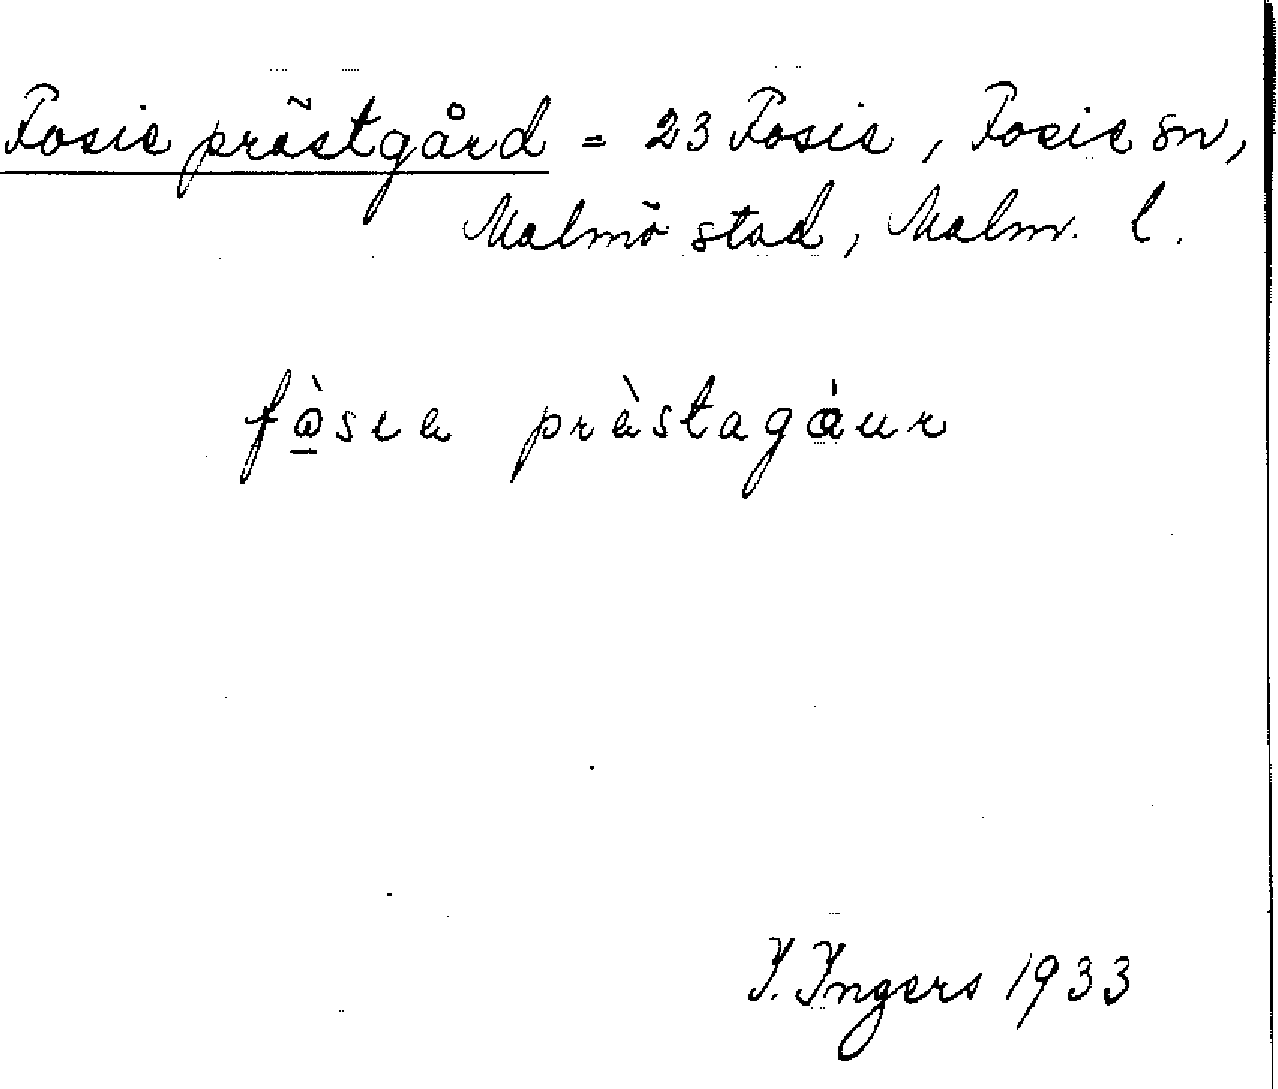 Fosie prästgård = 23 Fosie, Fosie sn,
Malmö stad, Malm. l.
fòsıe prèstagáur
I. Ingers 1933